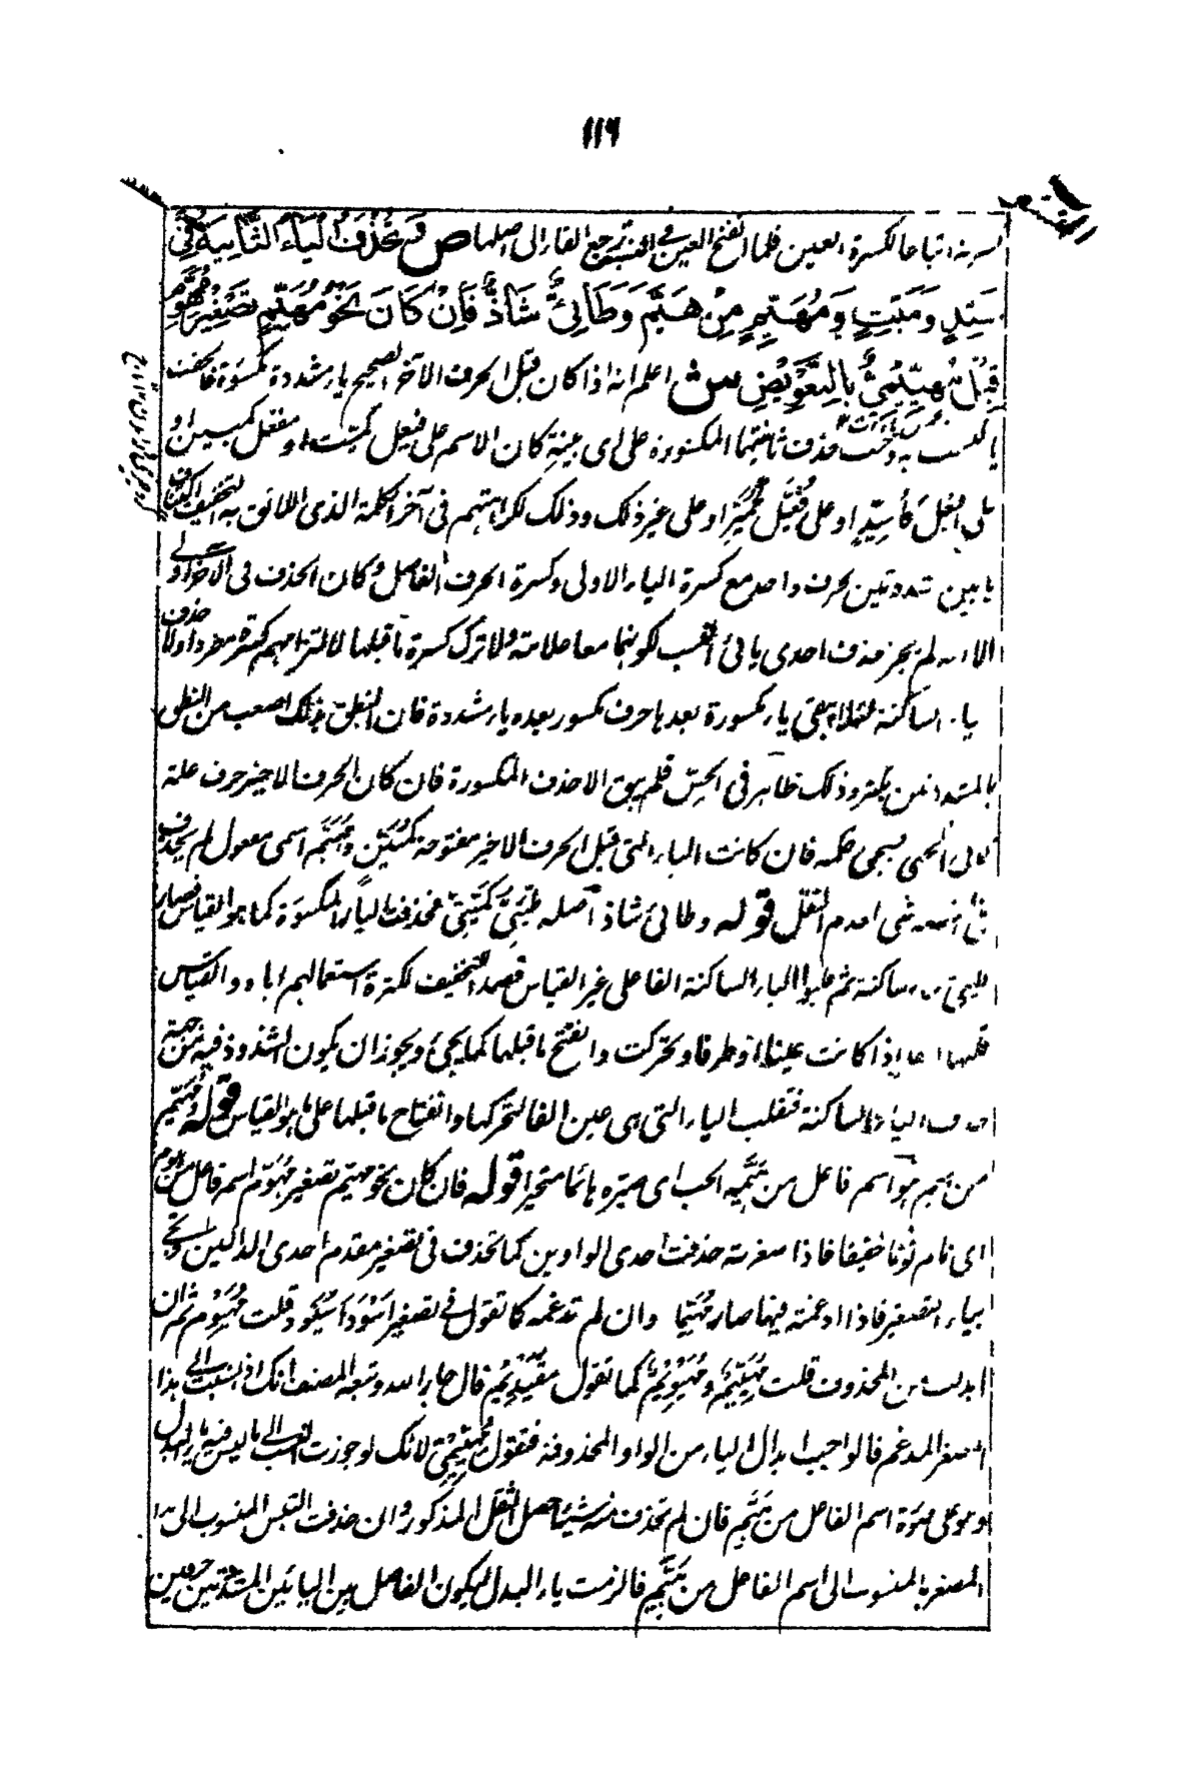 ١١٦
اتباعا لكسرة العين فلما انفتح العين فى النسبة رجع الفاء الى اصلها ص وَتُحْذَفُ الْيَاءُ الثَّانِيَةُ فِى
سَيِّدٍ وَمَيِّتٍ وَمُهَيِّمٍ مِنْ هَيَّمَ وَطَائِىٌّ شَاذٌّ فَاِنْ كَانَ نَحْوُ مُهَيِّمٍ تَصْغِيْرُ مُهَوِّمٍ
قِيْلَ مُهَيِّيْمِىٌّ بِالتَّعْوِيْضِ ش اعلم انه اذا كان قبل الحرف الآخر الصحيح ياء مشددة مكسورة
حذف ثانيتهما المكسورة على اى بنية كان الاسم على فيعل كميّت او مفعل كمبين او
افيعل كأسيّد او على فعيّل كحميّر او على غير ذلك وذلك لكراهتهم فى آخر الكلمة الذى اللائق به التخفيف
بحرف واحد مع كسرة الياء الاولى وكسرة الحرف الفاصل وكان الحذف فى الآخر اولى
الا انه لم يجز حذف احدى يائى النسب لكونهما معا علامة ولا ترك كسرة ما قبلها لالتزامهم كسرة مطردا ولا حذف
الساكنة لئلا يبقى ياء مكسورة بعدها حرف مكسور بعده ياء مشددة فان النطق بذلك اصعب من النطق
وذلك ظاهر فى الحس فلم يبق الا حذف المكسورة فان كان الحرف الاخير حرف علة
كما فى المحيى فسيجئ حكمه فان كانت الياء التى قبل الحرف الاخير مفتوحة كمبيّن ومهيّم اسمى مفعول لم يحذف
شئ لعدم الثقل قوله وطائى شاذ اصله طيّئىّ كميّتىّ فحذفت الياء المكسورة كما هو القياس فصار
ساكنة ثم قلبوا الياء الساكنة الفا على غير القياس قصدا للتخفيف لكثرة استعمالهم اياه والقياس
قلبها اذا كانت عينا او طرفا وتحركت وانفتح ما قبلها كما يجئ ويجوز ان يكون الشذوذ فيه من جهة
حذف الياء الساكنة فتقلب الياء التى هى عين الفا لتحركها وانفتاح ما قبلها على ما هو القياس قوله ومهيّم
من هيم هو اسم فاعل من هيّمه الحب اى صيّره هائما متحيرا قوله فان كان نحو مهيم تصغير مهوّم اسم فاعل من هوّم
اى نام نوما خفيفا فاذا صغرته حذفت احدى الواوين كما تحذف فى تصغير مقدم احدى الدالين
بياء التصغير فاذا ادغمته فيها صار مهيّما وان لم تدغمه كما تقول فى تصغير اسود اسيود قلت مهيوم ثم ان
ابدلت من المحذوف قلت مهيّيم ومهيويم كما تقول مقيديم قال جار الله وتبعه المصنف انك اذا نسبت الى هذا
المصغر المدغم فالواجب ابدال الياء من الواو المحذوفة فتقول مهيّيمىّ لانك لو جوزت النسب الى ما ليس فيه ياء البدل
وهو على صورة اسم الفاعل من هيّم فان لم تحذف منه شيئا حصل الثقل المذكور وان حذفت التبس المنسوب الى هذا
المصغر بالمنسوب الى اسم الفاعل من هيّم فالزمت ياء البدل ليكون الفاصل بين اليائين المشددتين حرفين